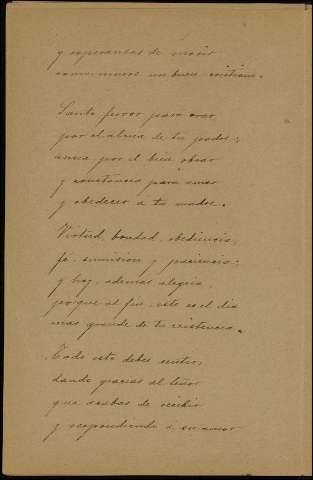 y esperanzas de morir
como muere un buen cristiano.
Santo fervor para orar
por el alma de tu padre;
ansia por el bien obrar
y constancia para amar
y obedecer a tu madre.
Virtud, bondad, obediencia,
fé, sumisión y paciencia;
y hoy, además alegria,
porque al fin, este es el dia
mas grande de tu existencia.
Todo esto debes sentir,
dando gracias al Señor
que acabas de recibir
y respondiendo a su amor